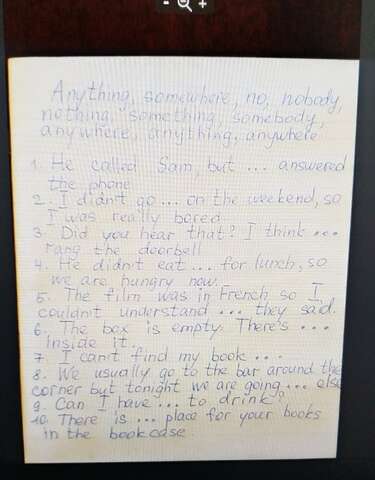 Anything, somewhere, no, nobody,
nothing, something, somebody,
anywhere, anything, anywhere
1. He called Sam, but ... answered
the phone
2. I didn't go ... on the weekend, so
I was really bored
3. Did you hear that? I think ...
rang the doorbell
4. He didn't eat ... for lunch, so
we are hungry now.
5. The film was in French so I
couldn't understand ... they said.
6. The box is empty. There's ...
inside it.
7. I can't find my book ...
8. We usually go to the bar around the
corner but tonight we are going ... else
9. Can I have ... to drink?
10. There is ... place for your books
in the bookcase